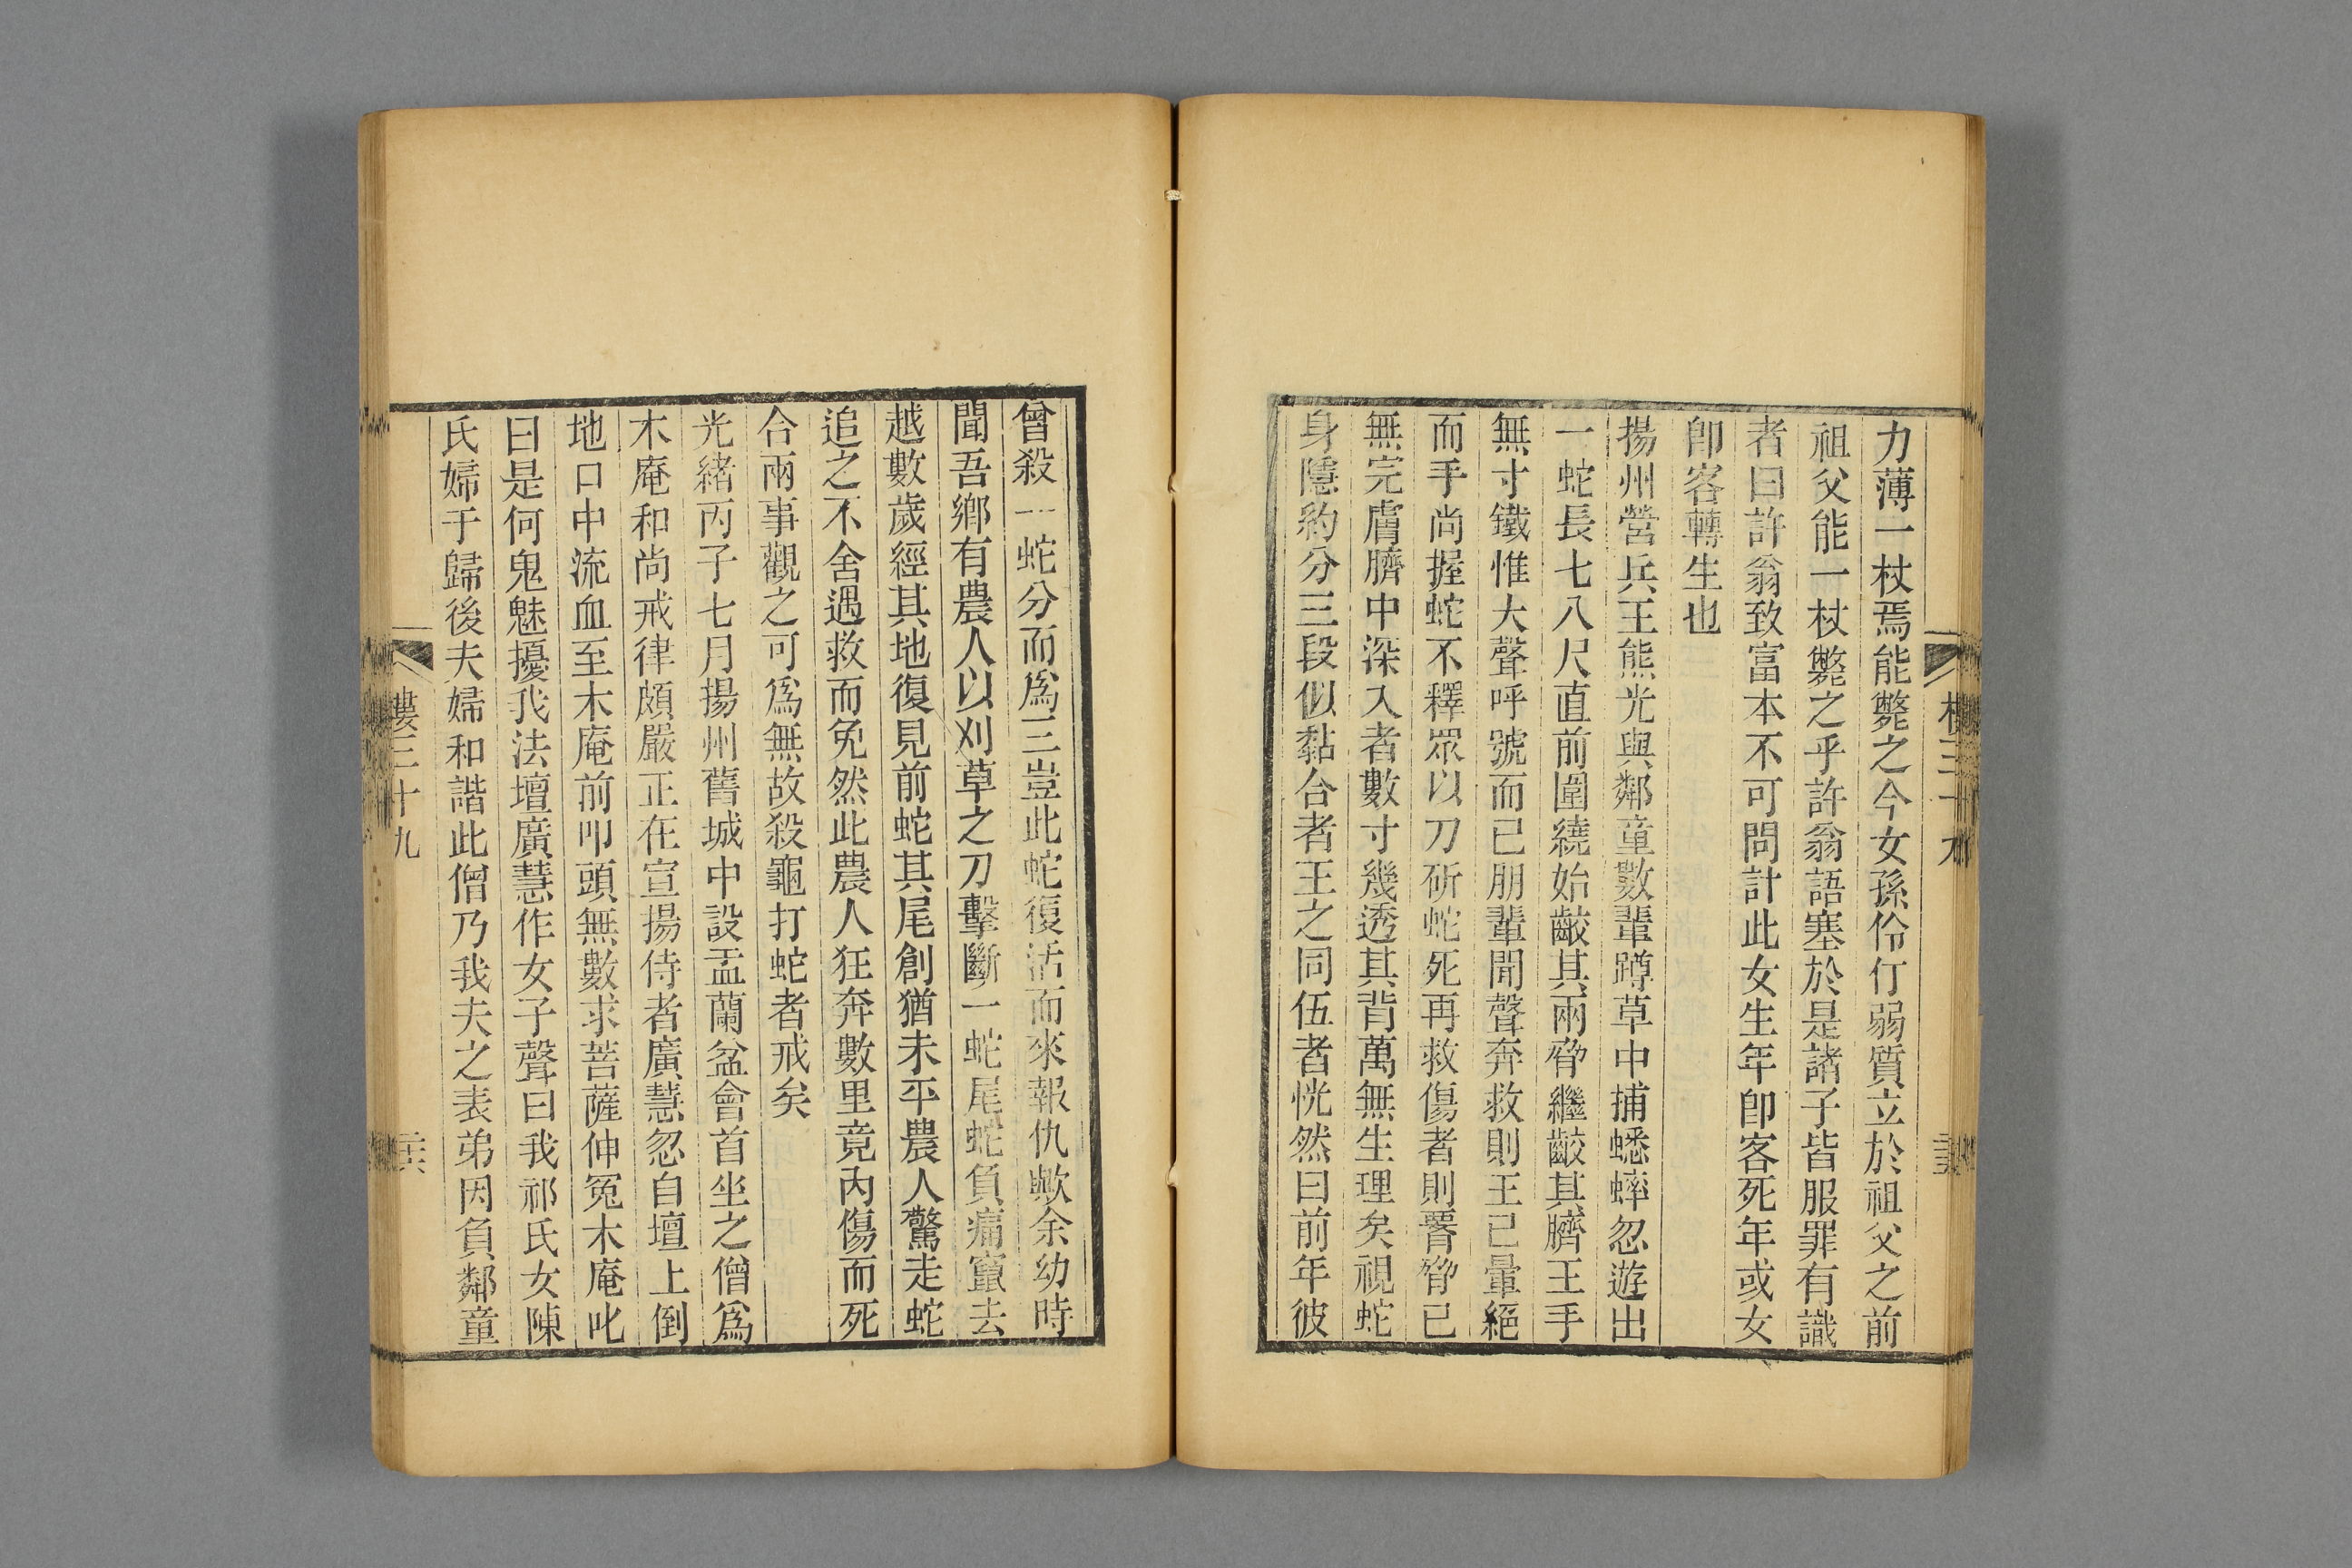 力薄一杖焉能斃之今女孫伶仃弱質立於祖父之前
祖父能一杖斃之乎許翁語塞於是諸子皆服罪有識
者曰許翁致富本不可問計此女生年卽客死年或女
卽客轉生也
揚州營兵王熊光與鄰童數輩蹲草中捕蟋蟀忽遊出
一蛇長七八尺直前圍繞始齩其兩脅繼齩其臍王手
無寸鐵惟大聲呼號而已朋輩聞聲奔救則王已暈絕
而手尚握蛇不釋眾以刀斫蛇死再救傷者則脣脅已
無完膚臍中深入者數寸幾透其背萬無生理矣視蛇
身隱約分三段似黏合者王之同伍者恍然曰前年彼
曾殺一蛇分而爲三豈此蛇復活而來報仇歟余幼時
聞吾鄉有農人以刈草之刀擊斷一蛇尾蛇負痛竄去
越數歲經其地復見前蛇其尾創猶未平農人驚走蛇
追之不舍遇救而免然此農人狂奔數里竟內傷而死
合兩事觀之可爲無故殺龜打蛇者戒矣
光緒丙子七月揚州舊城中設盂蘭盆會首坐之僧爲
木庵和尚戒律頗嚴正在宣揚侍者廣慧忽自壇上倒
地口中流血至木庵前叩頭無數求菩薩伸冤木庵叱
曰是何鬼魅擾我法壇廣慧作女子聲曰我祁氏女陳
氏婦于歸後夫婦和諧此僧乃我夫之表弟因負鄰童
婁三十九